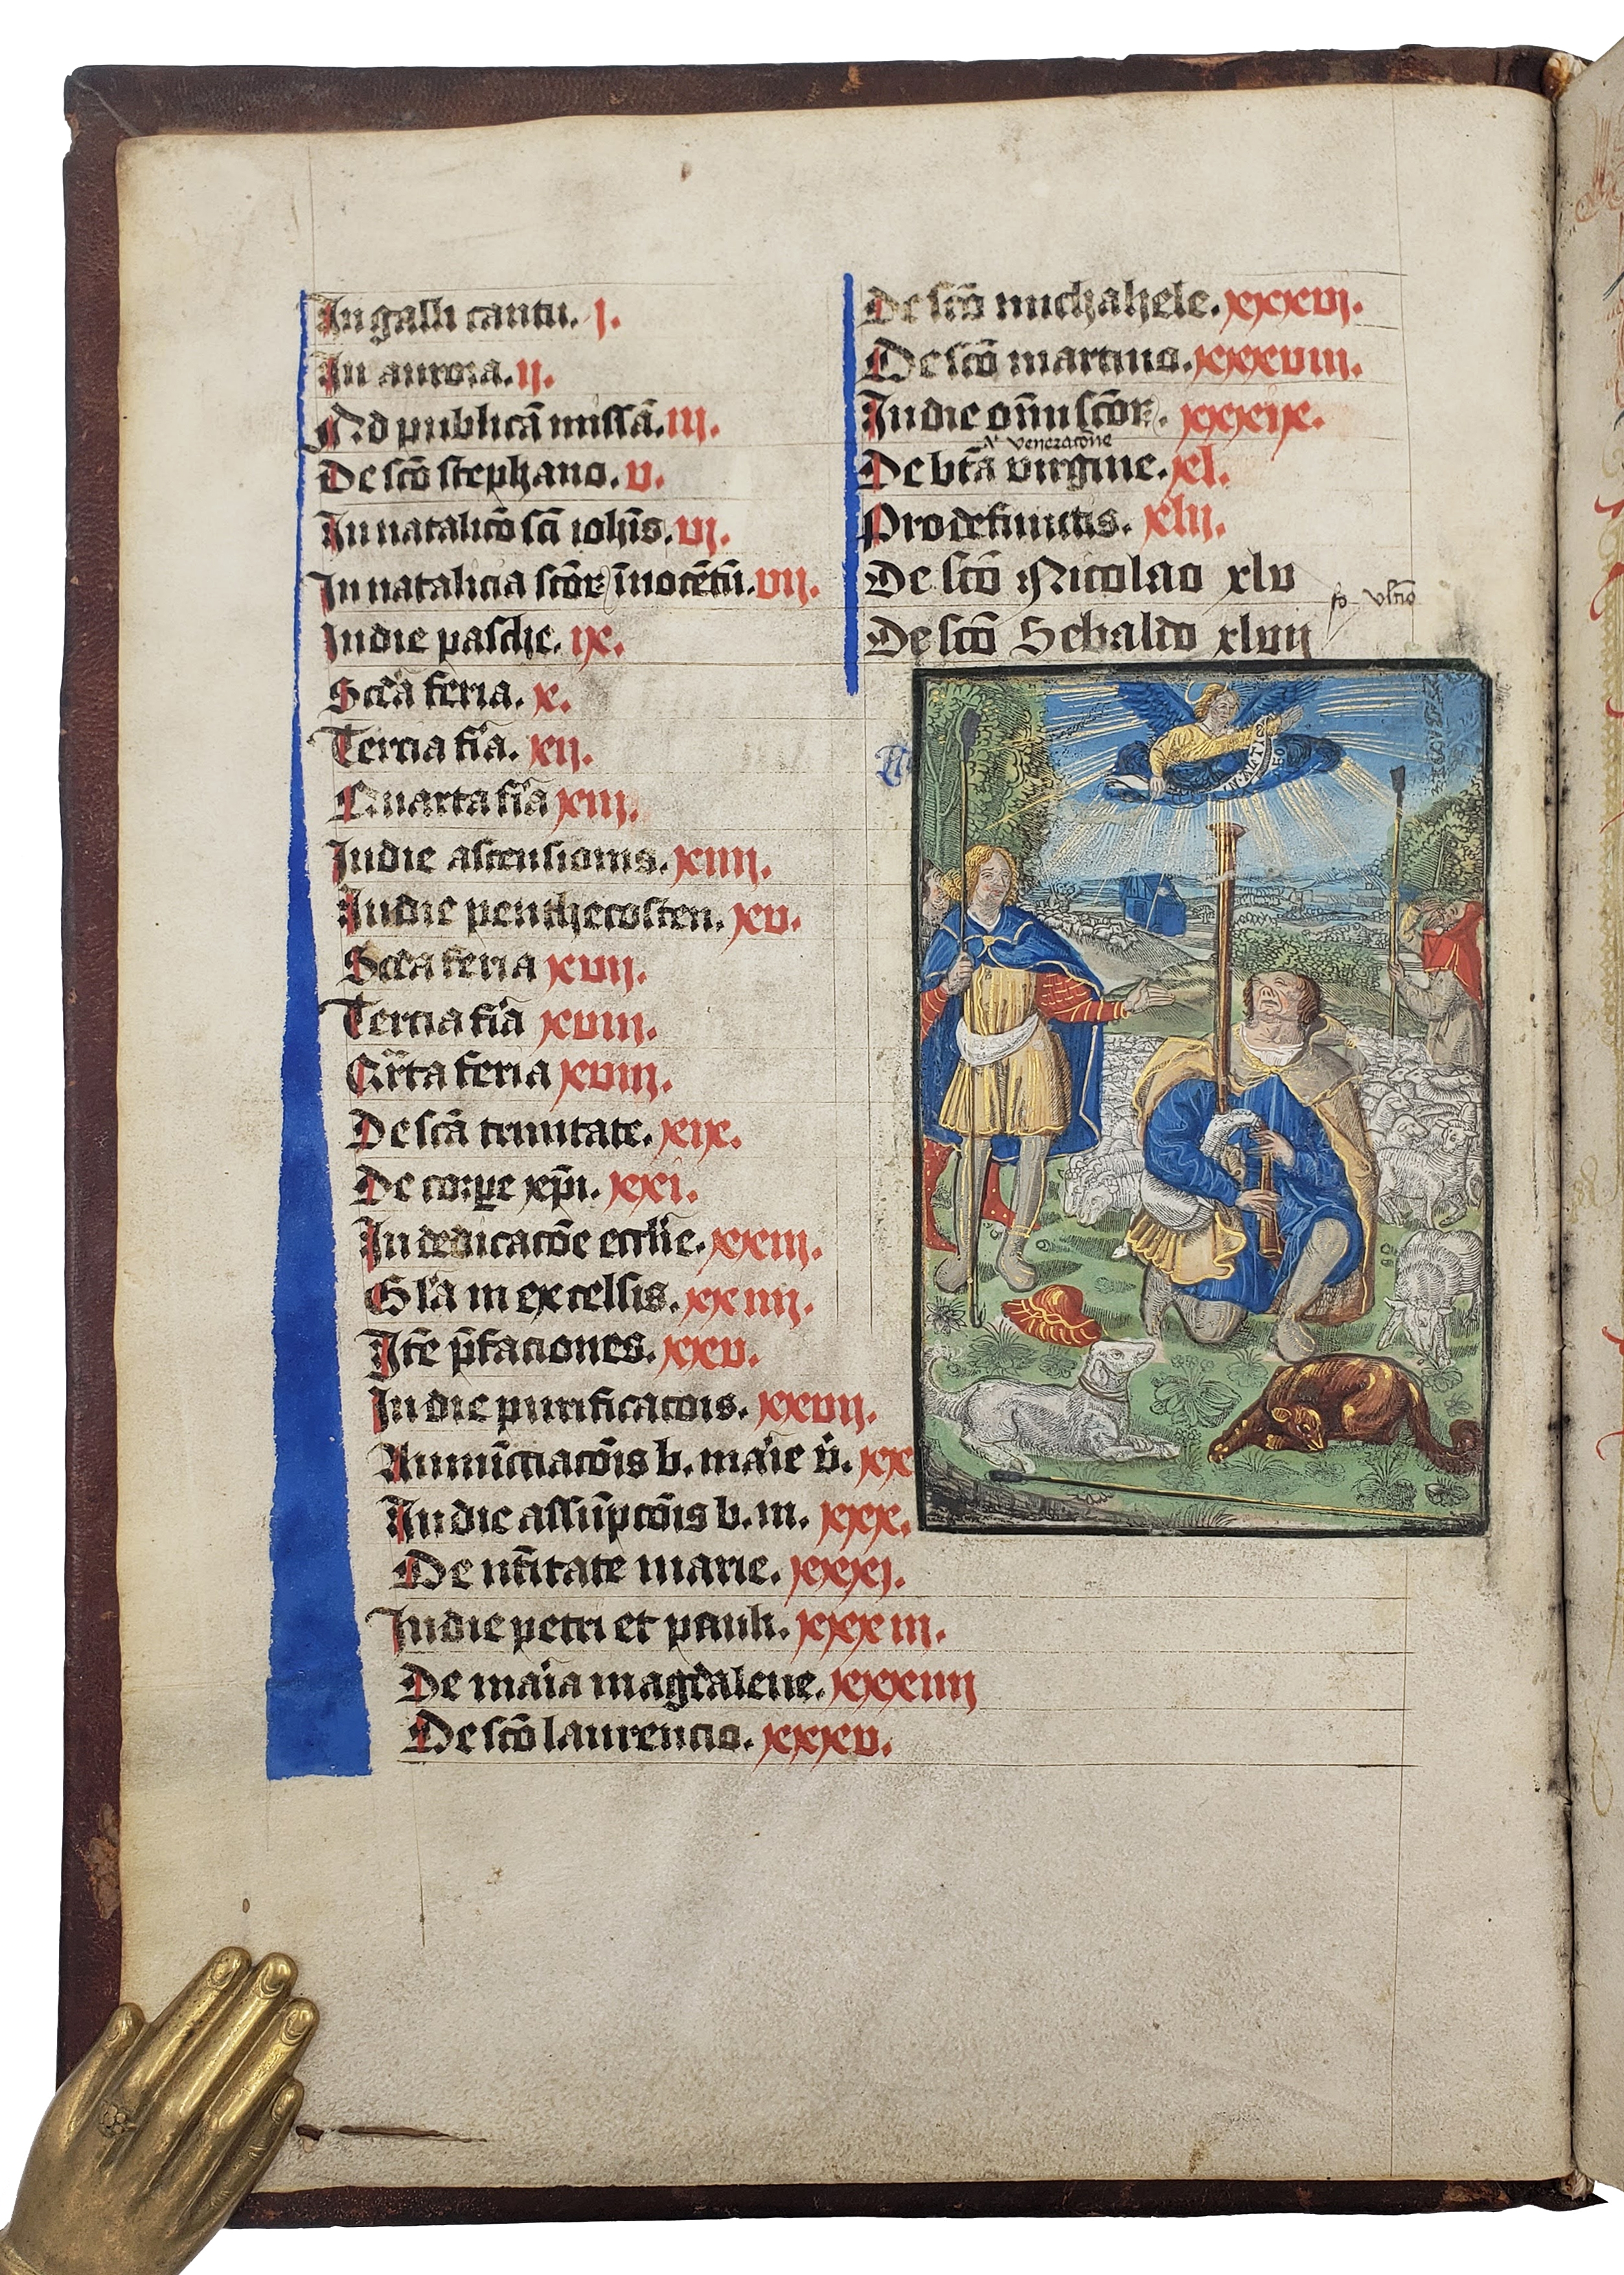 In galli cantu. j.
In aurora. ij.
Ad publicā missā. iij.
De sctō stephano. v.
In natalicō scī ioh̄is. vj.
In natalicia sctōrꝝ īnocētū. vij.
In die pasche. ix.
Scďa feria. x.
Tercia fīa. xij.
Quarta fīa xiij.
In die ascensionis. xiiij.
In die penthecosten. xv.
Scďa feria xvij.
Tercia fīa xviij.
Qrta feria xviij.
De sctā trinitate. xix.
De corꝑe xp̄i. xxi.
In dedicacōe eccl̄ie. xxiij.
Gl̄a in excelsis. xxiiij.
Itē p̄faciones. xxv.
In die purificacōis. xxvij.
Annūcciacōis b. māie v̄. xx
In die assūpcōis b. m. xxx.
De nt̄itate marie. xxxj.
In die petri et pauli. xxxiij.
De māia magďalene. xxxiiij
De sctō laurencio. xxxv.
De sctō michahele. xxxvij.
De sctō martino. xxxviij.
In die om̄niū sctōrꝝ. xxxix.
veneracōne
De btā virgine. xl.
Pro defunctis. xlij.
De sctō Nicolao xlv
fo vltīo
De sctō Sebaldo xlvij
IN ALTIS
DEO